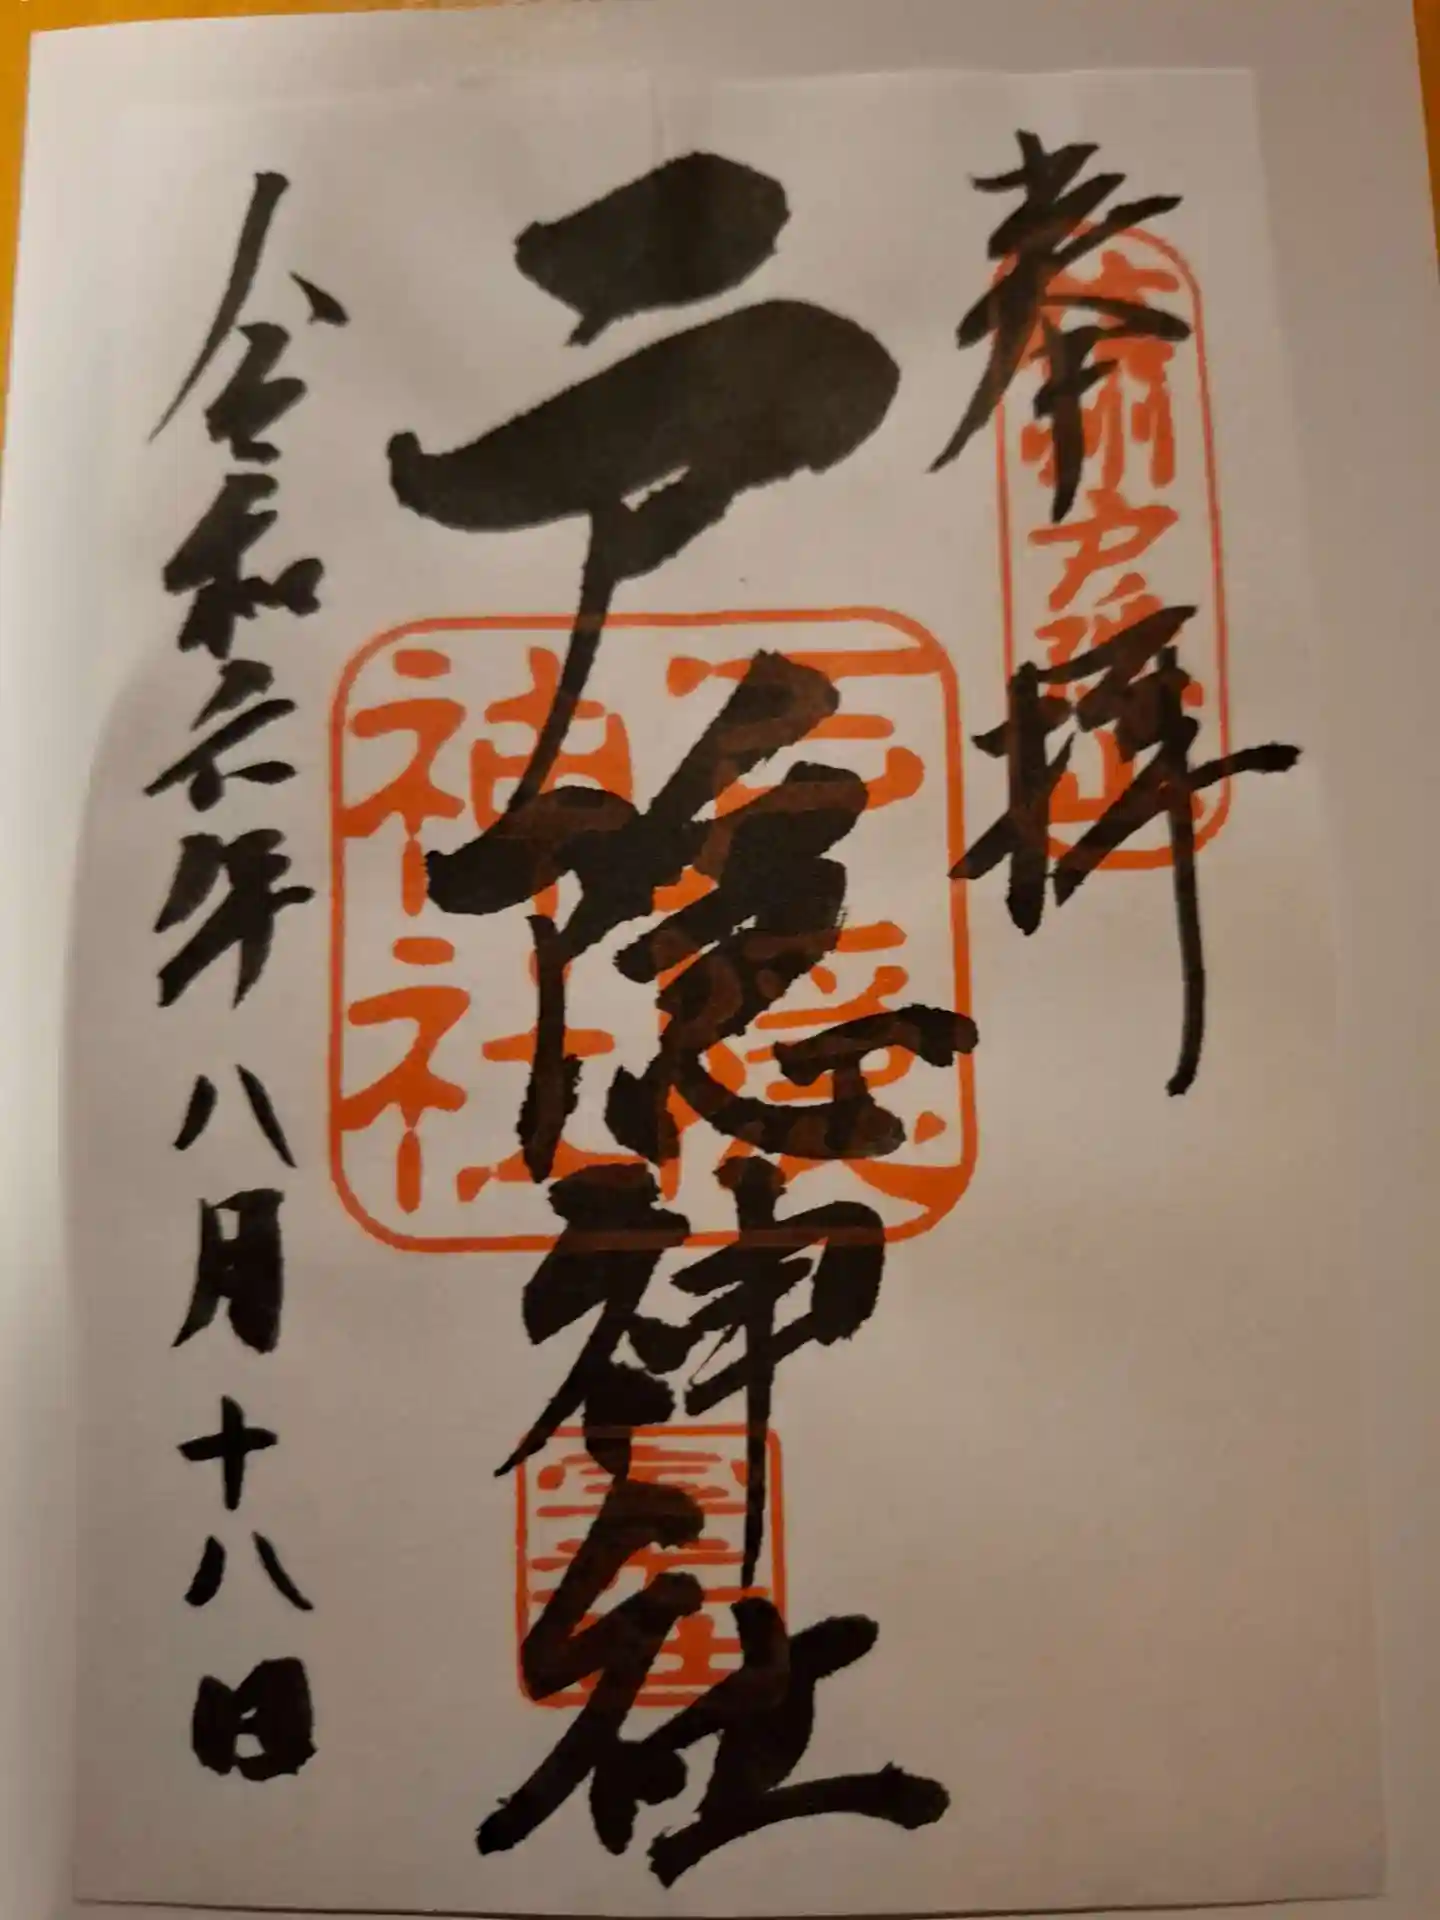 奉拝
信州戸隠山
戸隠神社
戸隠
神社
令和六年八月十八日